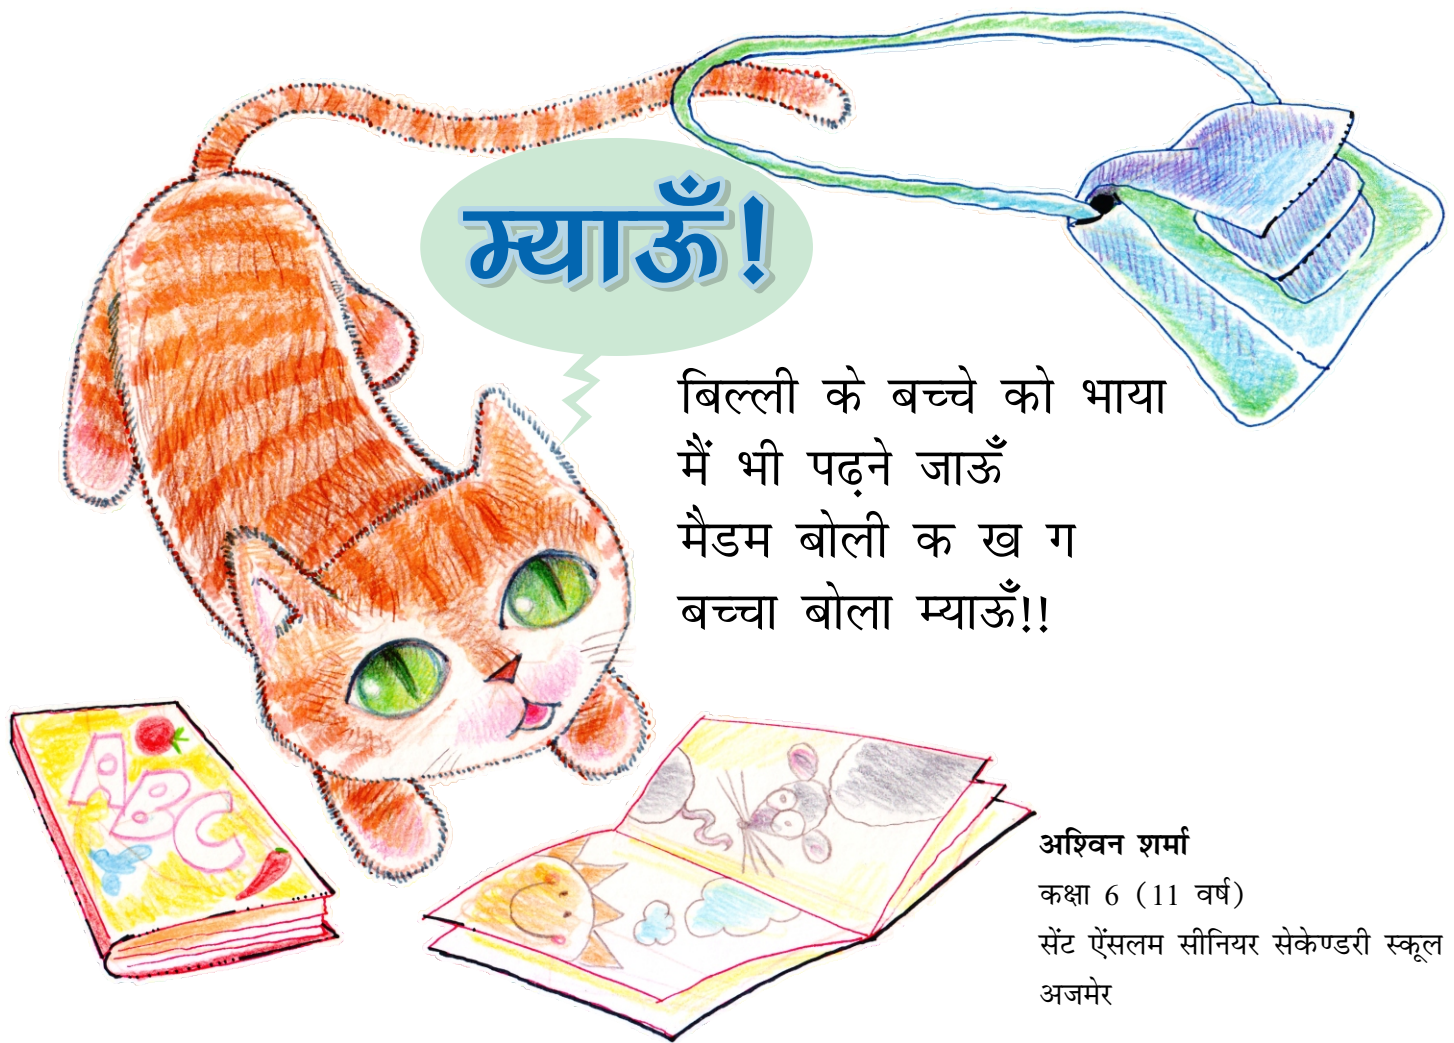 म्याऊँ!
बिल्ली के बच्चे को भाया
मैं भी पढ़ने जाऊँ
मैडम बोली क ख ग
बच्चा बोला म्याऊँ!!
ABC
अश्विन शर्मा
कक्षा 6 (11 वर्ष)
सेंट ऐंसलम सीनियर सेकेण्डरी स्कूल
अजमेर